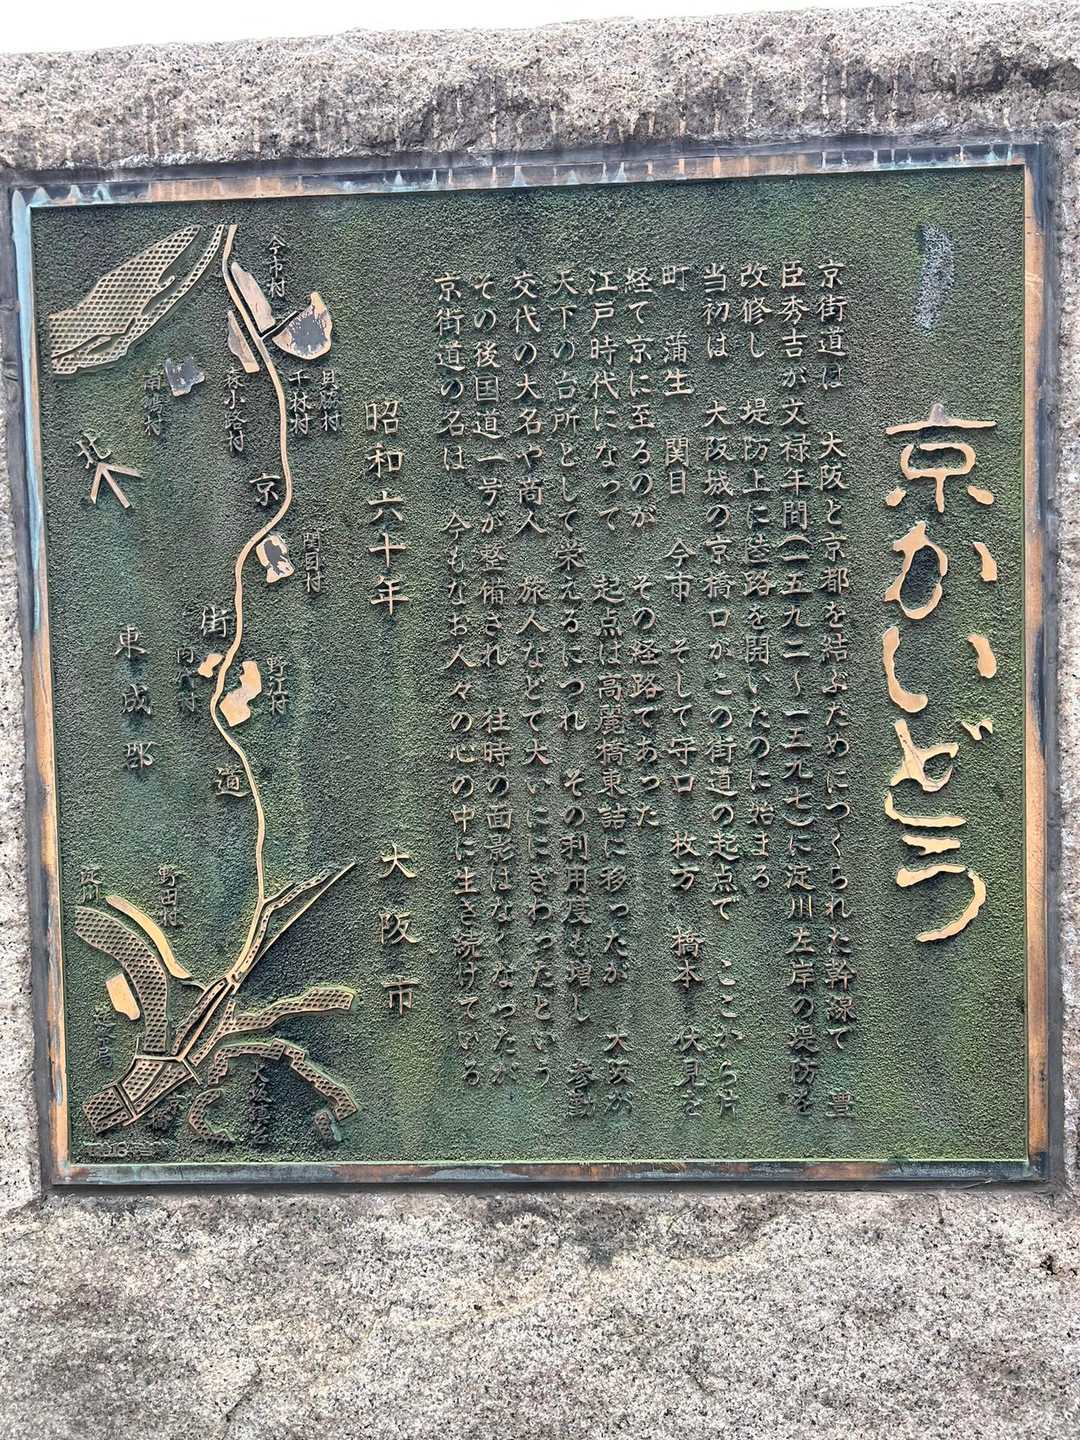 京かいどう
京街道は 大阪と京都を結ぶためにつくられた幹線で 豊
臣秀吉が文禄年間(一五九二〜一五九七)に淀川左岸の堤防を
改修し 堤防上に陸路を開いたのに始まる
当初は 大阪城の京橋口がこの街道の起点で ここから片
町 蒲生 関目 今市 そして守口 枚方 橋本 伏見を
経て京に至るのが その経路であった
江戸時代になって 起点は高麗橋東詰に移ったが 大阪が
天下の台所として栄えるにつれ その利用度も増し 参勤
交代の大名や商人 旅人などで大いににぎわったという
その後国道一号が整備され 往時の面影はなくなったが
京街道の名は 今もなお人々の心の中に生き続けている
昭和六十年
大阪市
今市村
貝脇村
千林村
森小路村
北
京街道
関目村
野江村
内代村
東成郡
野田村
淀川